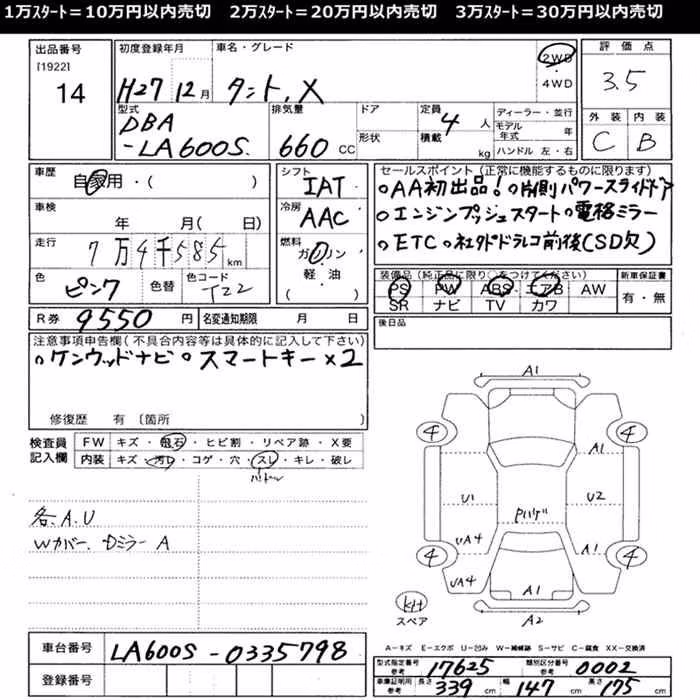 1万ｽﾀｰﾄ＝10万円以内売切　2万ｽﾀｰﾄ＝20万円以内売切　3万ｽﾀｰﾄ＝30万円以内売切
出品番号
[1922]
14
初度登録年月
H27 12月
車名・グレード
タント, X
2WD
4WD
評価点
3.5
外装 内装
C B
型式
DBA
-LA600S
排気量
660 CC
ドア
形状
定員 4 人
積載 kg
ディーラー・並行
モデル年式 年
ハンドル 左・右
車歴
自家用・( )
車検
年 月( 日)
走行
7万4千585km
色
ピンク
色替
色コード
T22
シフト
IAT
冷房
AAC
燃料
ガソリン
軽・油
( )
セールスポイント (正常に機能するものに限ります)
○AA初出品!○片側パワースライドドア
○エンジンプッシュスタート○電格ミラー
○ETC○社外ドラレコ前後(SD欠)
装備品(純正品に限り○をつけてください)
PS PW ABS エアB AW
SR ナビ TV カワ
新車保証書
有・無
R券 9550 円
名変通知期限 月 日
後日品
注意事項申告欄(不具合内容等は具体的に記入して下さい)
○ケンウッドナビ○スマートキー×2
修復歴 有 〔箇所 〕
検査員
記入欄
FW キズ・飛石・ヒビ割・リペア跡・X要
内装 キズ・汚レ・コゲ・穴・スレ・キレ・破レ
各.A.U
Wカバー、Dミラー A
A1
4 4
A1
U1 U2
UA4 A1
4 4
UA4
A1
A2
スペア
A-キズ E-エクボ U-凹み W-補修跡 S-サビ C-腐食 XX-交換済
車台番号 LA600S-0335798
登録番号
型式指定番号 参考 17625
類別区分番号 参考 0002
車庫証明用 参考 長さ 339 cm 幅 147 cm 高さ 175 cm